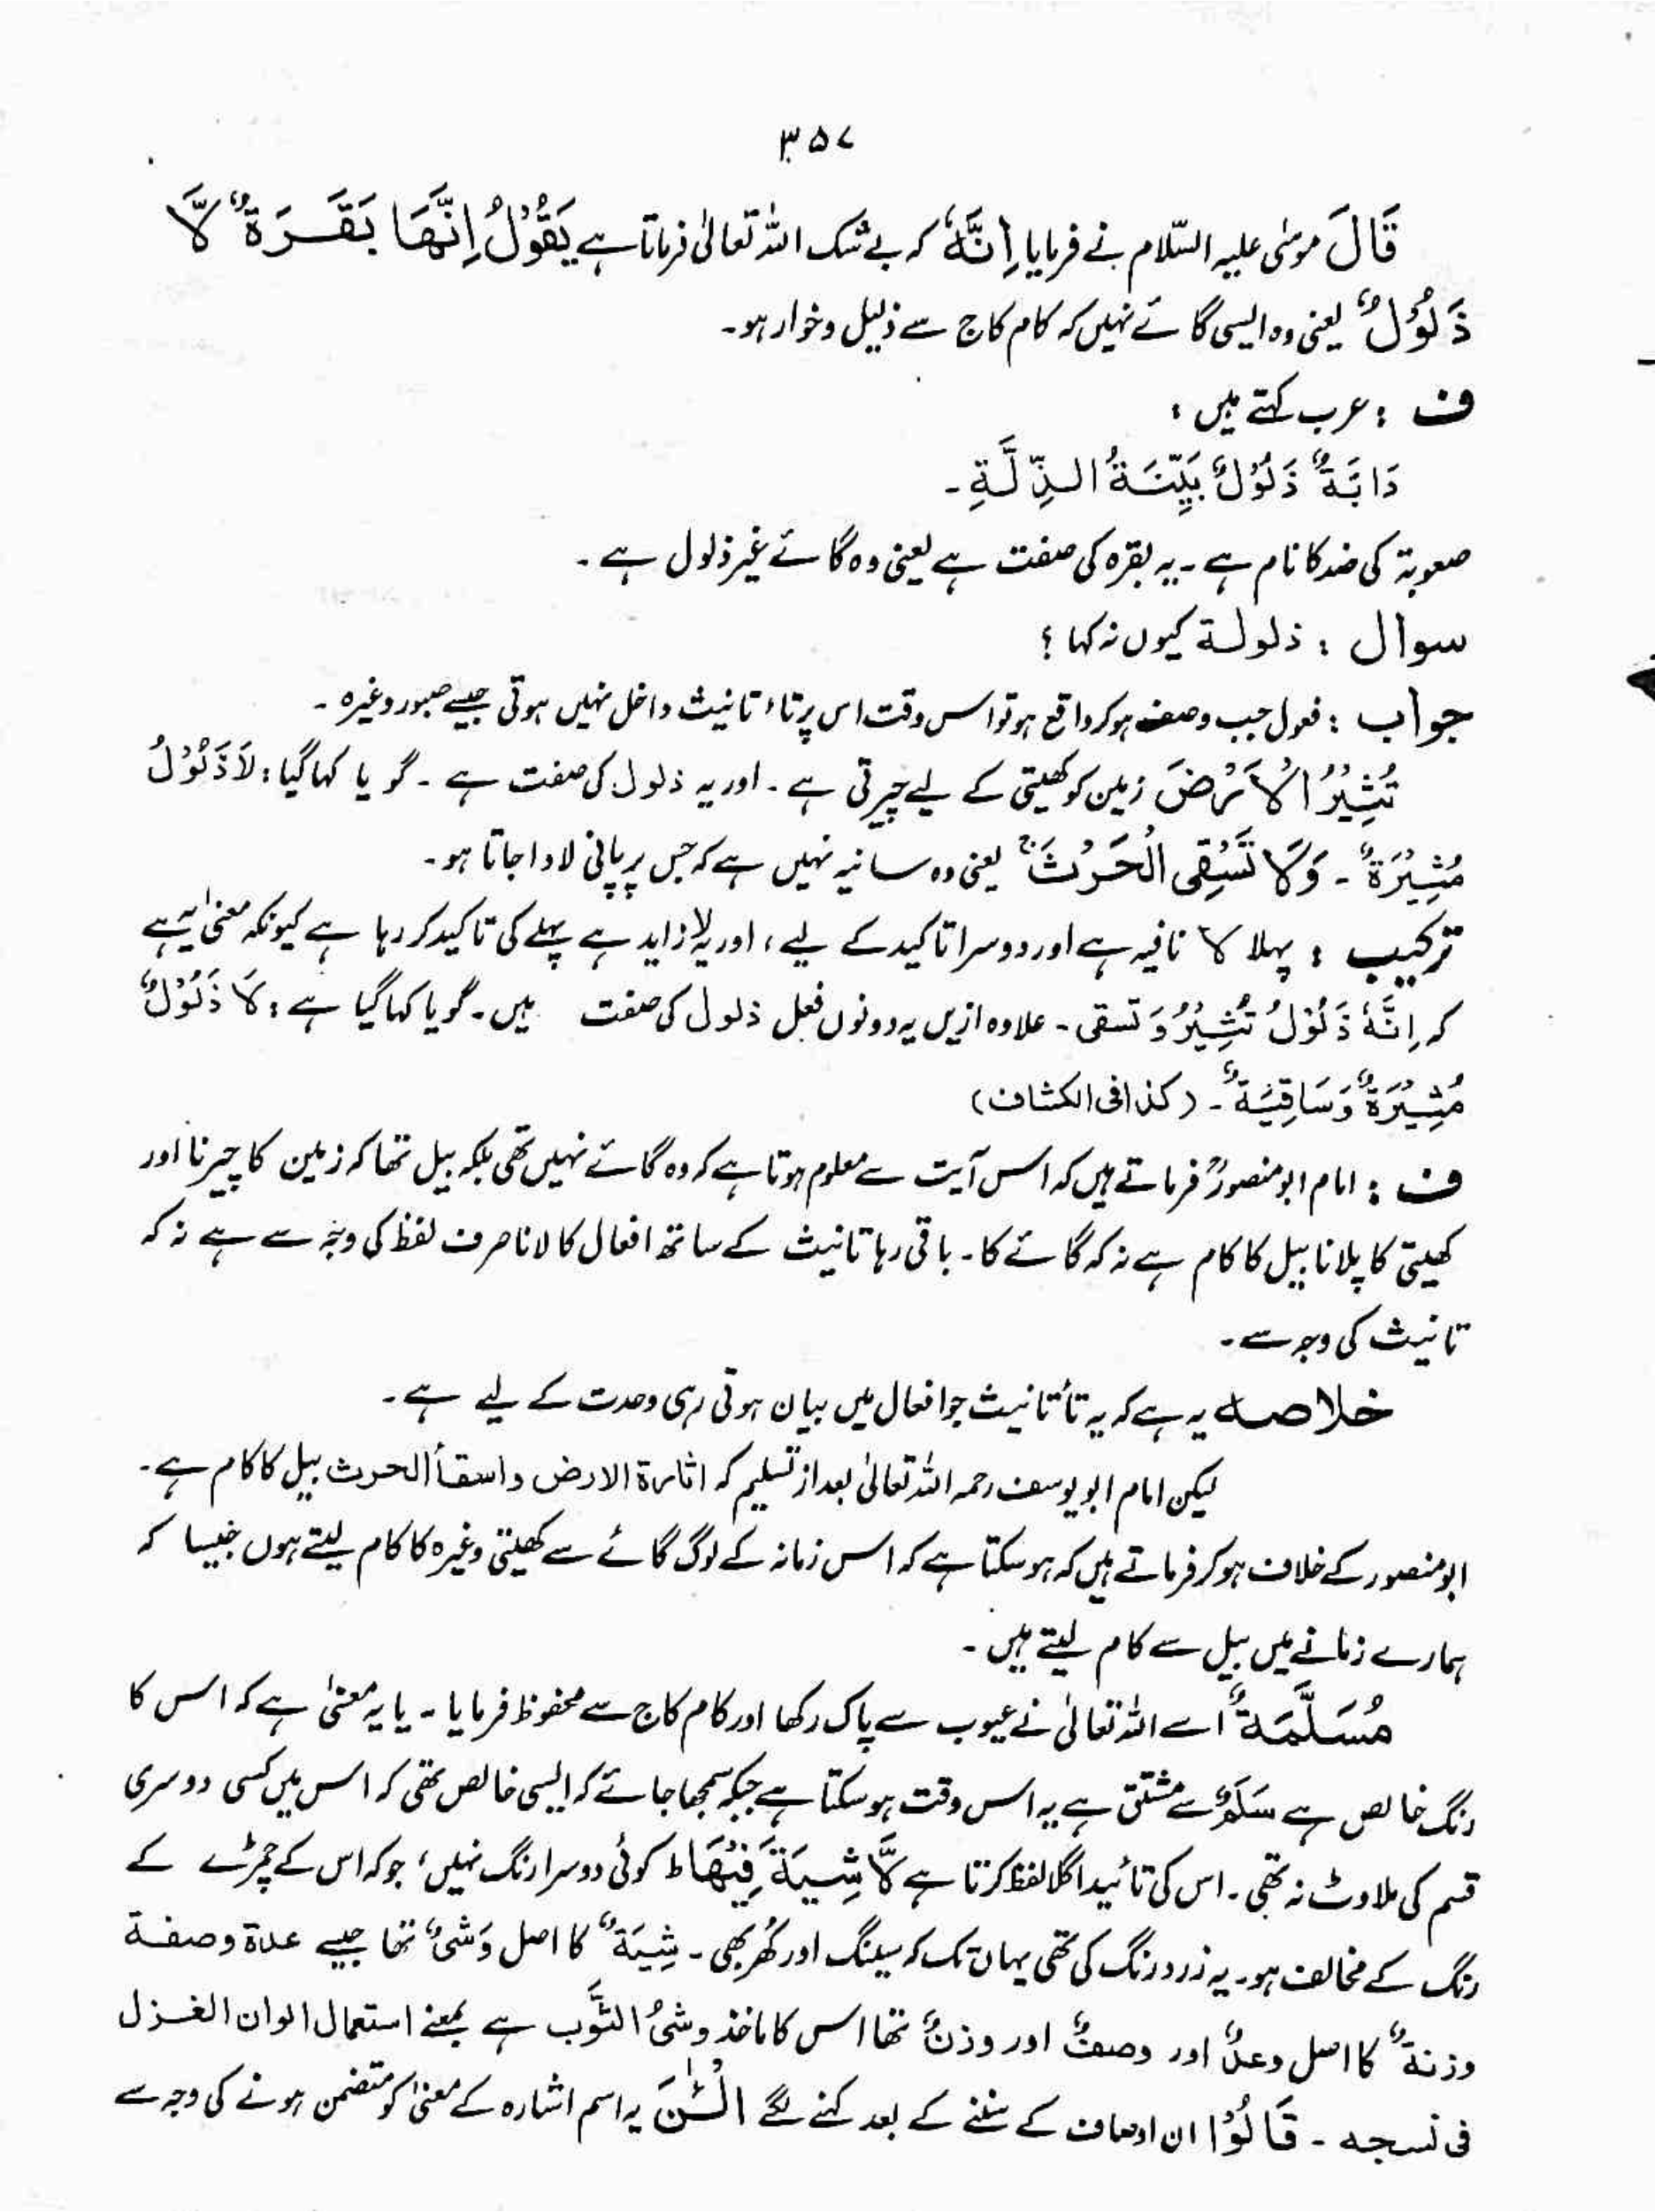 ۳۵۷
قَالَ موسٰی علیہ السّلام نے فرمایا اِنَّهٗ کہ بے شک اللہ تعالٰی فرماتا ہے یَقُوْلُ اِنَّهَا بَقَرَةٌ لَّا
ذَلُوْلٌ یعنی وہ ایسی گائے نہیں کہ کام کاج سے ذلیل و خوار ہو۔
ف : عرب کہتے ہیں :
دَابَّةٌ ذَلُوْلٌ بَیِّنَةُ الذِّلَّةِ۔
صعوبۃ کی ضد کا نام ہے۔ یہ بقرہ کی صفت ہے یعنی وہ گائے غیر ذلول ہے۔
سوال : ذلولة کیوں نہ کہا ؟
جواب : فعول جب وصف ہو کر واقع ہو تو اس وقت اس پر تاء تانیث داخل نہیں ہوتی جیسے صبور وغیرہ۔
تُثِیْرُ الْاَرْضَ زمین کو کھیتی کے لیے چیرتی ہے۔ اور یہ ذلول کی صفت ہے۔ گویا کہا گیا : لَاذَلُوْلٌ
مُثِیْرَةٌ۔ وَلَا تَسْقِی الْحَرْثَ ۚ یعنی وہ سانیہ نہیں ہے کہ جس پر پانی لادا جاتا ہو۔
ترکیب : پہلا لا نافیہ ہے اور دوسرا تاکید کے لیے ، اور یہ لا زاید ہے پہلے کی تاکید کر رہا ہے کیونکہ معنیٰ یہ ہے
کہ اِنَّهٗ ذَلُوْلٌ تُثِیْرُ وَ تسقی۔ علاوہ ازیں یہ دونوں فعل ذلول کی صفت ہیں۔ گویا کہا گیا ہے : لَا ذَلُوْلٌ
مُثِیْرَةٌ وَّسَاقِیَةٌ۔ (کذا فی الکشاف)
ف : امام ابو منصورؒ فرماتے ہیں کہ اس آیت سے معلوم ہوتا ہے کہ وہ گائے نہیں تھی بلکہ بیل تھا کہ زمین کا چیرنا اور
کھیتی کا پلانا بیل کا کام ہے نہ کہ گائے کا۔ باقی رہا تانیث کے ساتھ افعال کا لانا صرف لفظ کی وجہ سے ہے نہ کہ
تانیث کی وجہ سے۔
خلاصہ یہ ہے کہ یہ تأ تانیث جو افعال میں بیان ہوتی رہی وحدت کے لیے ہے۔
لیکن امام ابو یوسف رحمہ اللہ تعالیٰ بعد از تسلیم کہ اثارة الارض و اسقأ الحرث بیل کا کام ہے۔
ابو منصور کے خلاف ہو کر فرماتے ہیں کہ ہو سکتا ہے کہ اس زمانہ کے لوگ گائے سے کھیتی وغیرہ کا کام لیتے ہوں جیسا کہ
ہمارے زمانے میں بیل سے کام لیتے ہیں۔
مُسَلَّمَةٌ اسے اللہ تعالیٰ نے عیوب سے پاک رکھا اور کام کاج سے محفوظ فرمایا۔ یا یہ معنیٰ ہے کہ اس کا
رنگ خالص ہے سَلَمٌ سے مشتق ہے یہ اس وقت ہو سکتا ہے جبکہ سمجھا جائے کہ ایسی خالص تھی کہ اس میں کسی دوسری
قسم کی ملاوٹ نہ تھی۔ اس کی تائید اگلا لفظ کرتا ہے لَّا شِیَةَ فِیْهَا ط کوئی دوسرا رنگ نہیں، جو کہ اس کے چمڑے کے
رنگ کے مخالف ہو۔ یہ زرد رنگ کی تھی یہاں تک کہ سینگ اور کُھر بھی۔ شِیَةٌ کا اصل وَشْیٌ تھا جیسے عدة و صفة
وزنةٌ کا اصل وعدٌ اور وصفٌ اور وزنٌ تھا اس کا ماخذ وشیُ الثَّوب ہے بمعنے استعمال الوان الغزل
فی نسجه۔ قَالُوْا ان اوصاف کے سننے کے بعد کہنے لگے الْـٰٔنَ یہ اسم اشارہ کے معنیٰ کو متضمن ہونے کی وجہ سے